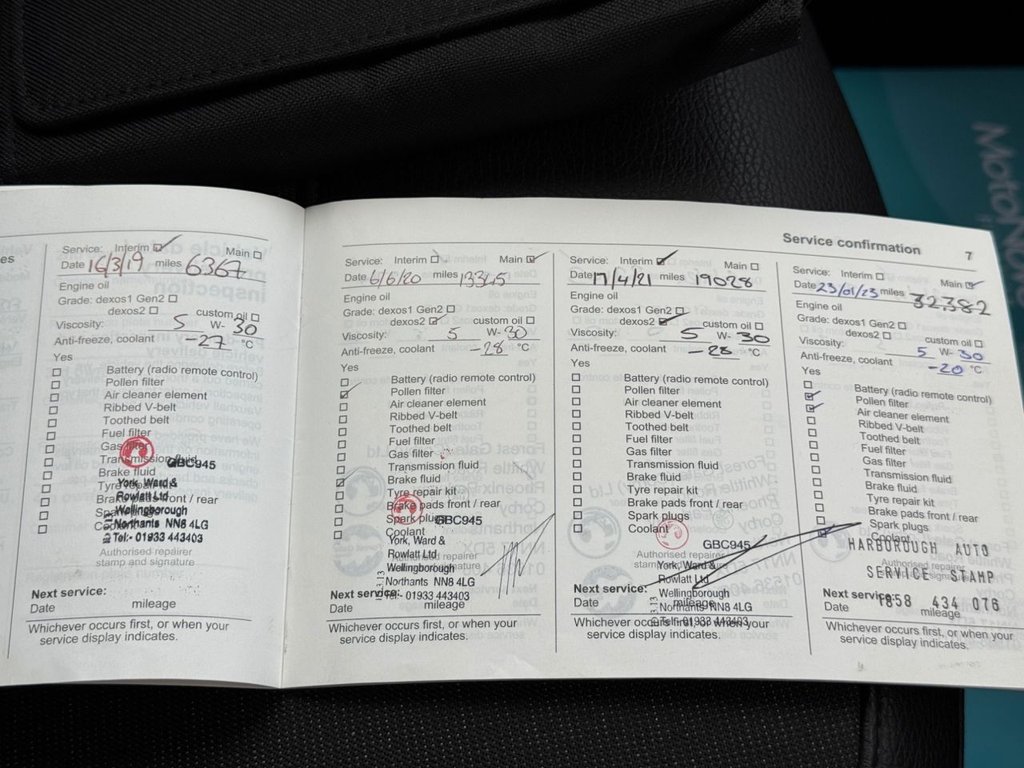 es
Service: Interim Main
Date 16/3/19 miles 6367
Engine oil
Grade: dexos1 Gen2
dexos2 custom oil
Viscosity: 5 W- 30
Anti-freeze, coolant -27 °C
Yes
Battery (radio remote control)
Pollen filter
Air cleaner element
Ribbed V-belt
Toothed belt
Fuel filter
Gas filter
Transmission fluid
GBC945
Brake fluid
Tyre repair kit
Brake pads front / rear
Spark plugs
Coolant
York, Ward &
Rowlatt Ltd
Wellingborough
Northants NN8 4LG
Tel:- 01933 443403
Authorised repairer
stamp and signature
Next service:
Date mileage
Whichever occurs first, or when your
service display indicates.
Service: Interim Main
Date 6/6/20 miles 13345
Engine oil
Grade: dexos1 Gen2
dexos2 custom oil
Viscosity: 5 W- 30
Anti-freeze, coolant -28 °C
Yes
Battery (radio remote control)
Pollen filter
Air cleaner element
Ribbed V-belt
Toothed belt
Fuel filter
Gas filter
Transmission fluid
Brake fluid
Tyre repair kit
Brake pads front / rear
Spark plugs
GBC945
Coolant
York, Ward &
Rowlatt Ltd
Wellingborough
Northants NN8 4LG
01933 443403
Authorised repairer
signature
Next service:
Date mileage
Whichever occurs first, or when your
service display indicates.
Service confirmation 7
Service: Interim Main
Date 17/4/21 miles 19028
Engine oil
Grade: dexos1 Gen2
dexos2 custom oil
Viscosity: 5 W- 30
Anti-freeze, coolant -28 °C
Yes
Battery (radio remote control)
Pollen filter
Air cleaner element
Ribbed V-belt
Toothed belt
Fuel filter
Gas filter
Transmission fluid
Brake fluid
Tyre repair kit
Brake pads front / rear
Spark plugs
Coolant
GBC945
Authorised repairer
York, Ward &
Rowlatt Ltd
Wellingborough
Northants NN8 4LG
Tel:- 01933 443403
Next service:
Date mileage
Whichever occurs first, or when your
service display indicates.
Service: Interim Main
Date 23/01/23 miles 32,382
Engine oil
Grade: dexos1 Gen2
dexos2 custom oil
Viscosity: 5 W- 30
Anti-freeze, coolant -20 °C
Yes
Battery (radio remote control)
Pollen filter
Air cleaner element
Ribbed V-belt
Toothed belt
Fuel filter
Gas filter
Transmission fluid
Brake fluid
Tyre repair kit
Brake pads front / rear
Spark plugs
Coolant
HARBOROUGH AUTO
SERVICE STAMP
1858 434 076
Next service:
Date mileage
Whichever occurs first, or when your
service display indicates.